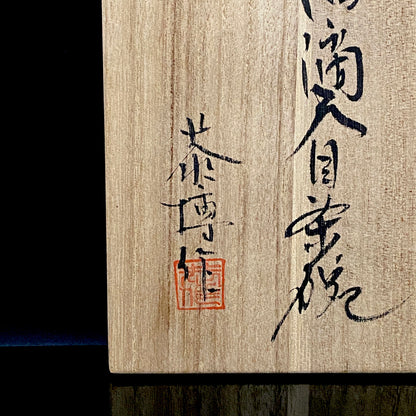 滴天目茶碗
泰博作